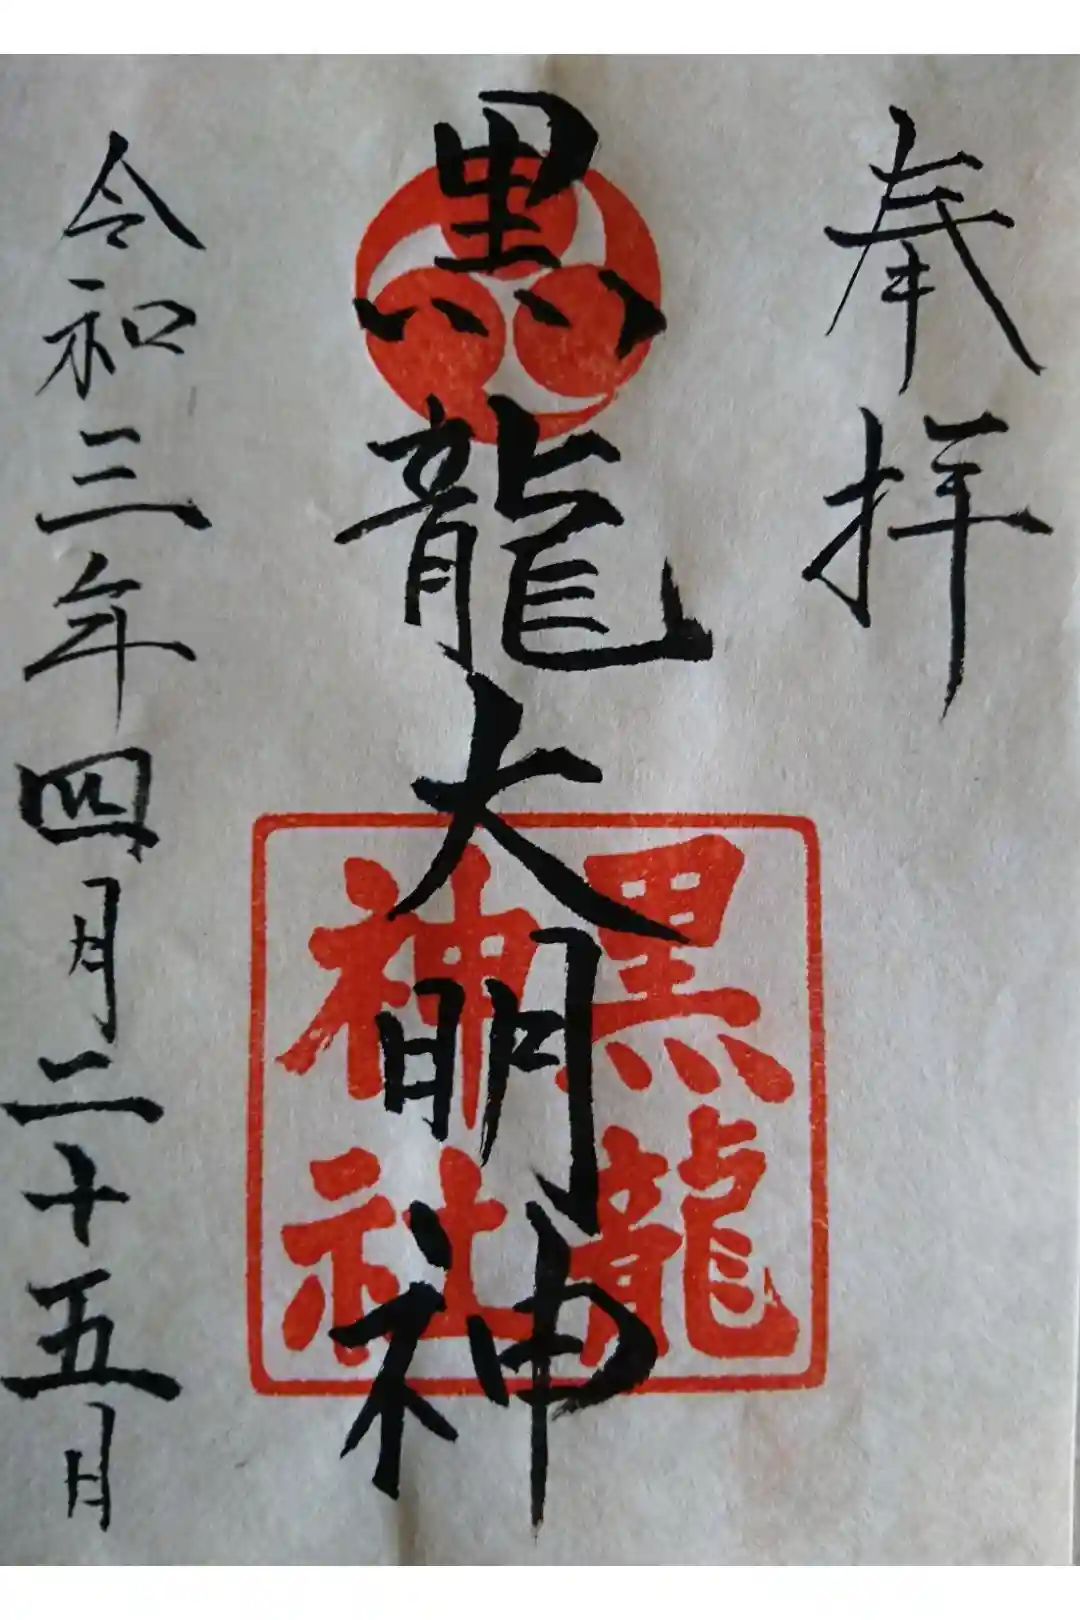 奉拝
黒龍大明神
黒龍
神社
令和三年四月二十五日